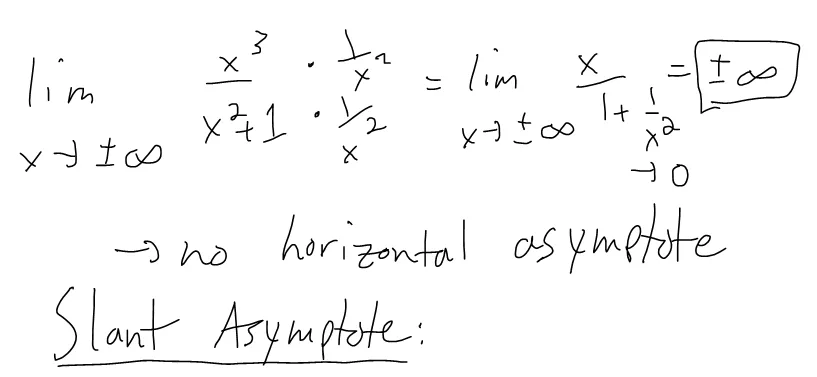 lim x→±∞ x³/(x²+1) · (1/x²)/(1/x²) = lim x→±∞ x/(1+1/x²) = ±∞
→0
→ no horizontal asymptote
Slant Asymptote: